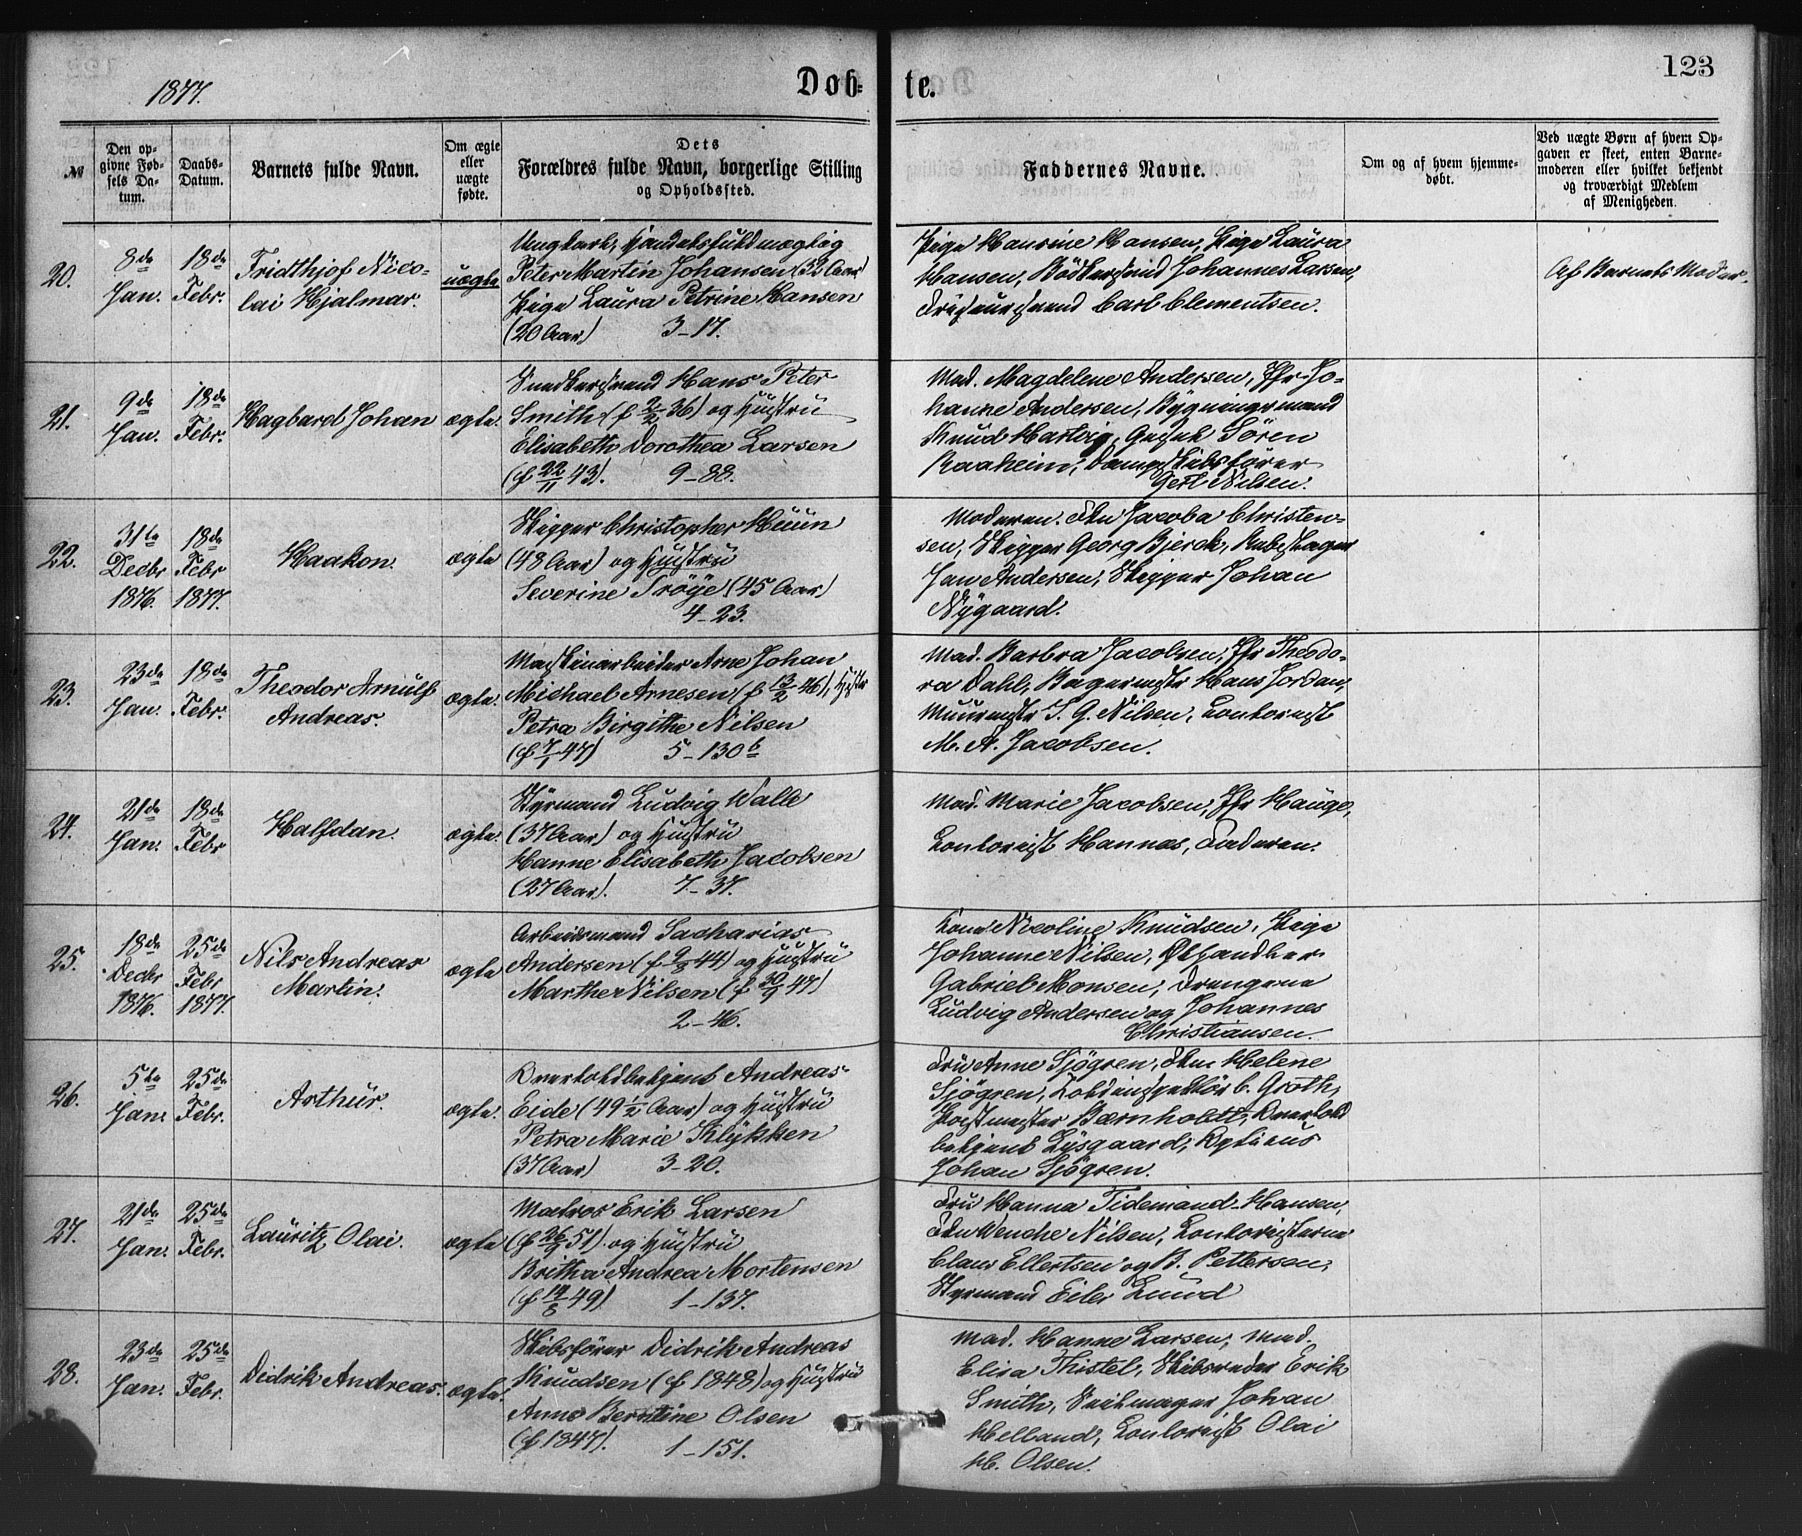 1877.
Døb-
te.
123
№
Den op-
givne Fød-
sels Da-
tum.
Daabs-
Datum.
Barnets fulde Navn.
Om ægte
eller
uægte
fødte.
Dets
Forældres fulde Navn, borgerlige Stilling
og Opholdssted.
Faddernes Navne.
Om og af hvem hjemme-
døbt.
Ved uægte Børn af hvem Op-
gaven er skeet, enten Barne-
moderen eller hvilket bekjendt
og troværdigt Medlem
af Menigheden.
20.
8de
Jan.
18de
Febr.
Fridthjof Nico-
lai Hjalmar.
uægte
Ungkarl, Handelsfuldmægtig
Peter Martin Johansen (32 Aar)
Pige Laura Petrine Hansen
(20 Aar) 3-17.
Pige Hansine Hansen, Pige Laura
Hansen, Bødkersvend Johannes Larsen,
Friseursvend Carl Clementsen.
Af Barnets Moder.
21.
9de
Jan.
18de
Febr.
Hagbart Johan
ægte.
Snedkersvend Hans Peter
Smith (f 2/2 36) og Hustru
Elisabeth Dorothea Larsen
(f 22/11 43). 9-88.
Mad. Magdelene Andersen, Jfr Jo-
hanne Andersen, Bygningsmand
Knud Hartvig, Søren
Raaheim, Dampskibsfører
Gert Nilsen.
22.
31te
Decbr
1876.
18de
Febr
1877.
Haakon.
ægte
Skipper Christopher Hüün
(48 Aar) og Hustru
Severine Tröye (45 Aar)
4-23.
Moderen. Jacoba Christen-
sen, Skipper Georg Bjerck, Rebslager
Jan Andersen, Skipper Johan
Nygaard.
23.
23de
Jan.
18de
Febr.
Theodor Arnulf
Andreas.
ægte.
Maskinarbeider Arne Johan
Michael Arnesen (f 13/2 46), Hustru
Petra Birgithe Nilsen
(f 7/1 47) 5-130b
Mad. Barbra Jacobsen, Jfr Theodo-
ra Dahl, Bagermester Hans Jordan,
Muurmester T. G. Nilsen, Contorist
M. A. Jacobsen.
24.
21de
Jan.
18de
Febr
Halfdan.
ægte.
Styrmand Ludvig Walle
(37 Aar) og Hustru
Hanne Elisabeth Jacobsen
(27 Aar). 7-37.
Mad. Marie Jacobsen, Jfr Hauge,
Contorist Hannas, Faderen.
25.
18de
Decbr
1876.
25de
Febr
1877.
Nils Andreas
Martin.
ægte
Arbeidsmand Sacharias
Andersen (f 9/8 44) og Hustru
Marthe Nilsen (f 30/9 47)
2-46.
Kone Nicoline Knudsen, Pige
Johanne Nilsen, Ølhandler
Gabriel Monsen, Drengene
Ludvig Andersen og Johannes
Christiansen.
26.
5te
Jan.
25de
Febr.
Arthür.
ægte.
Overtoldbetjent Andreas
Eide (49 1/2 Aar) og Hustru
Petra Marie Klykken
(37 Aar) 3-20.
Fru Anne Sjögren, Helene
Sjögren, Toldinspektör C. Groth,
Postmester Bærnholdt, Overtold
betjent Lysgaard,
Johan Sjögren.
27.
21de
Jan.
25de
Febr.
Lauritz Olai.
ægte
Matros Erik Larsen
(f 26/9 51) og Hustru
Britha Andrea Mortensen
(f 14/8 49) 1-137.
Fru Hanna Tidemand-Hansen,
Wenche Nilsen, Contoristerne
Claus Ellertsen og B. Pettersen,
Styrmand Eiler Lund
28.
23de
Jan.
25de
Febr.
Didrik Andreas.
ægte.
Skibsfører Didrik Andreas
Knudsen (f 1848) og Hustru
Anne Berntine Olsen
(f 1847). 1-151.
Mad. Hanne Larsen, Mad.
Elisa Thistel, Skibsreder Erik
Smith, Seilmager Johan
Helland, Contorist Olai
H. Olsen.